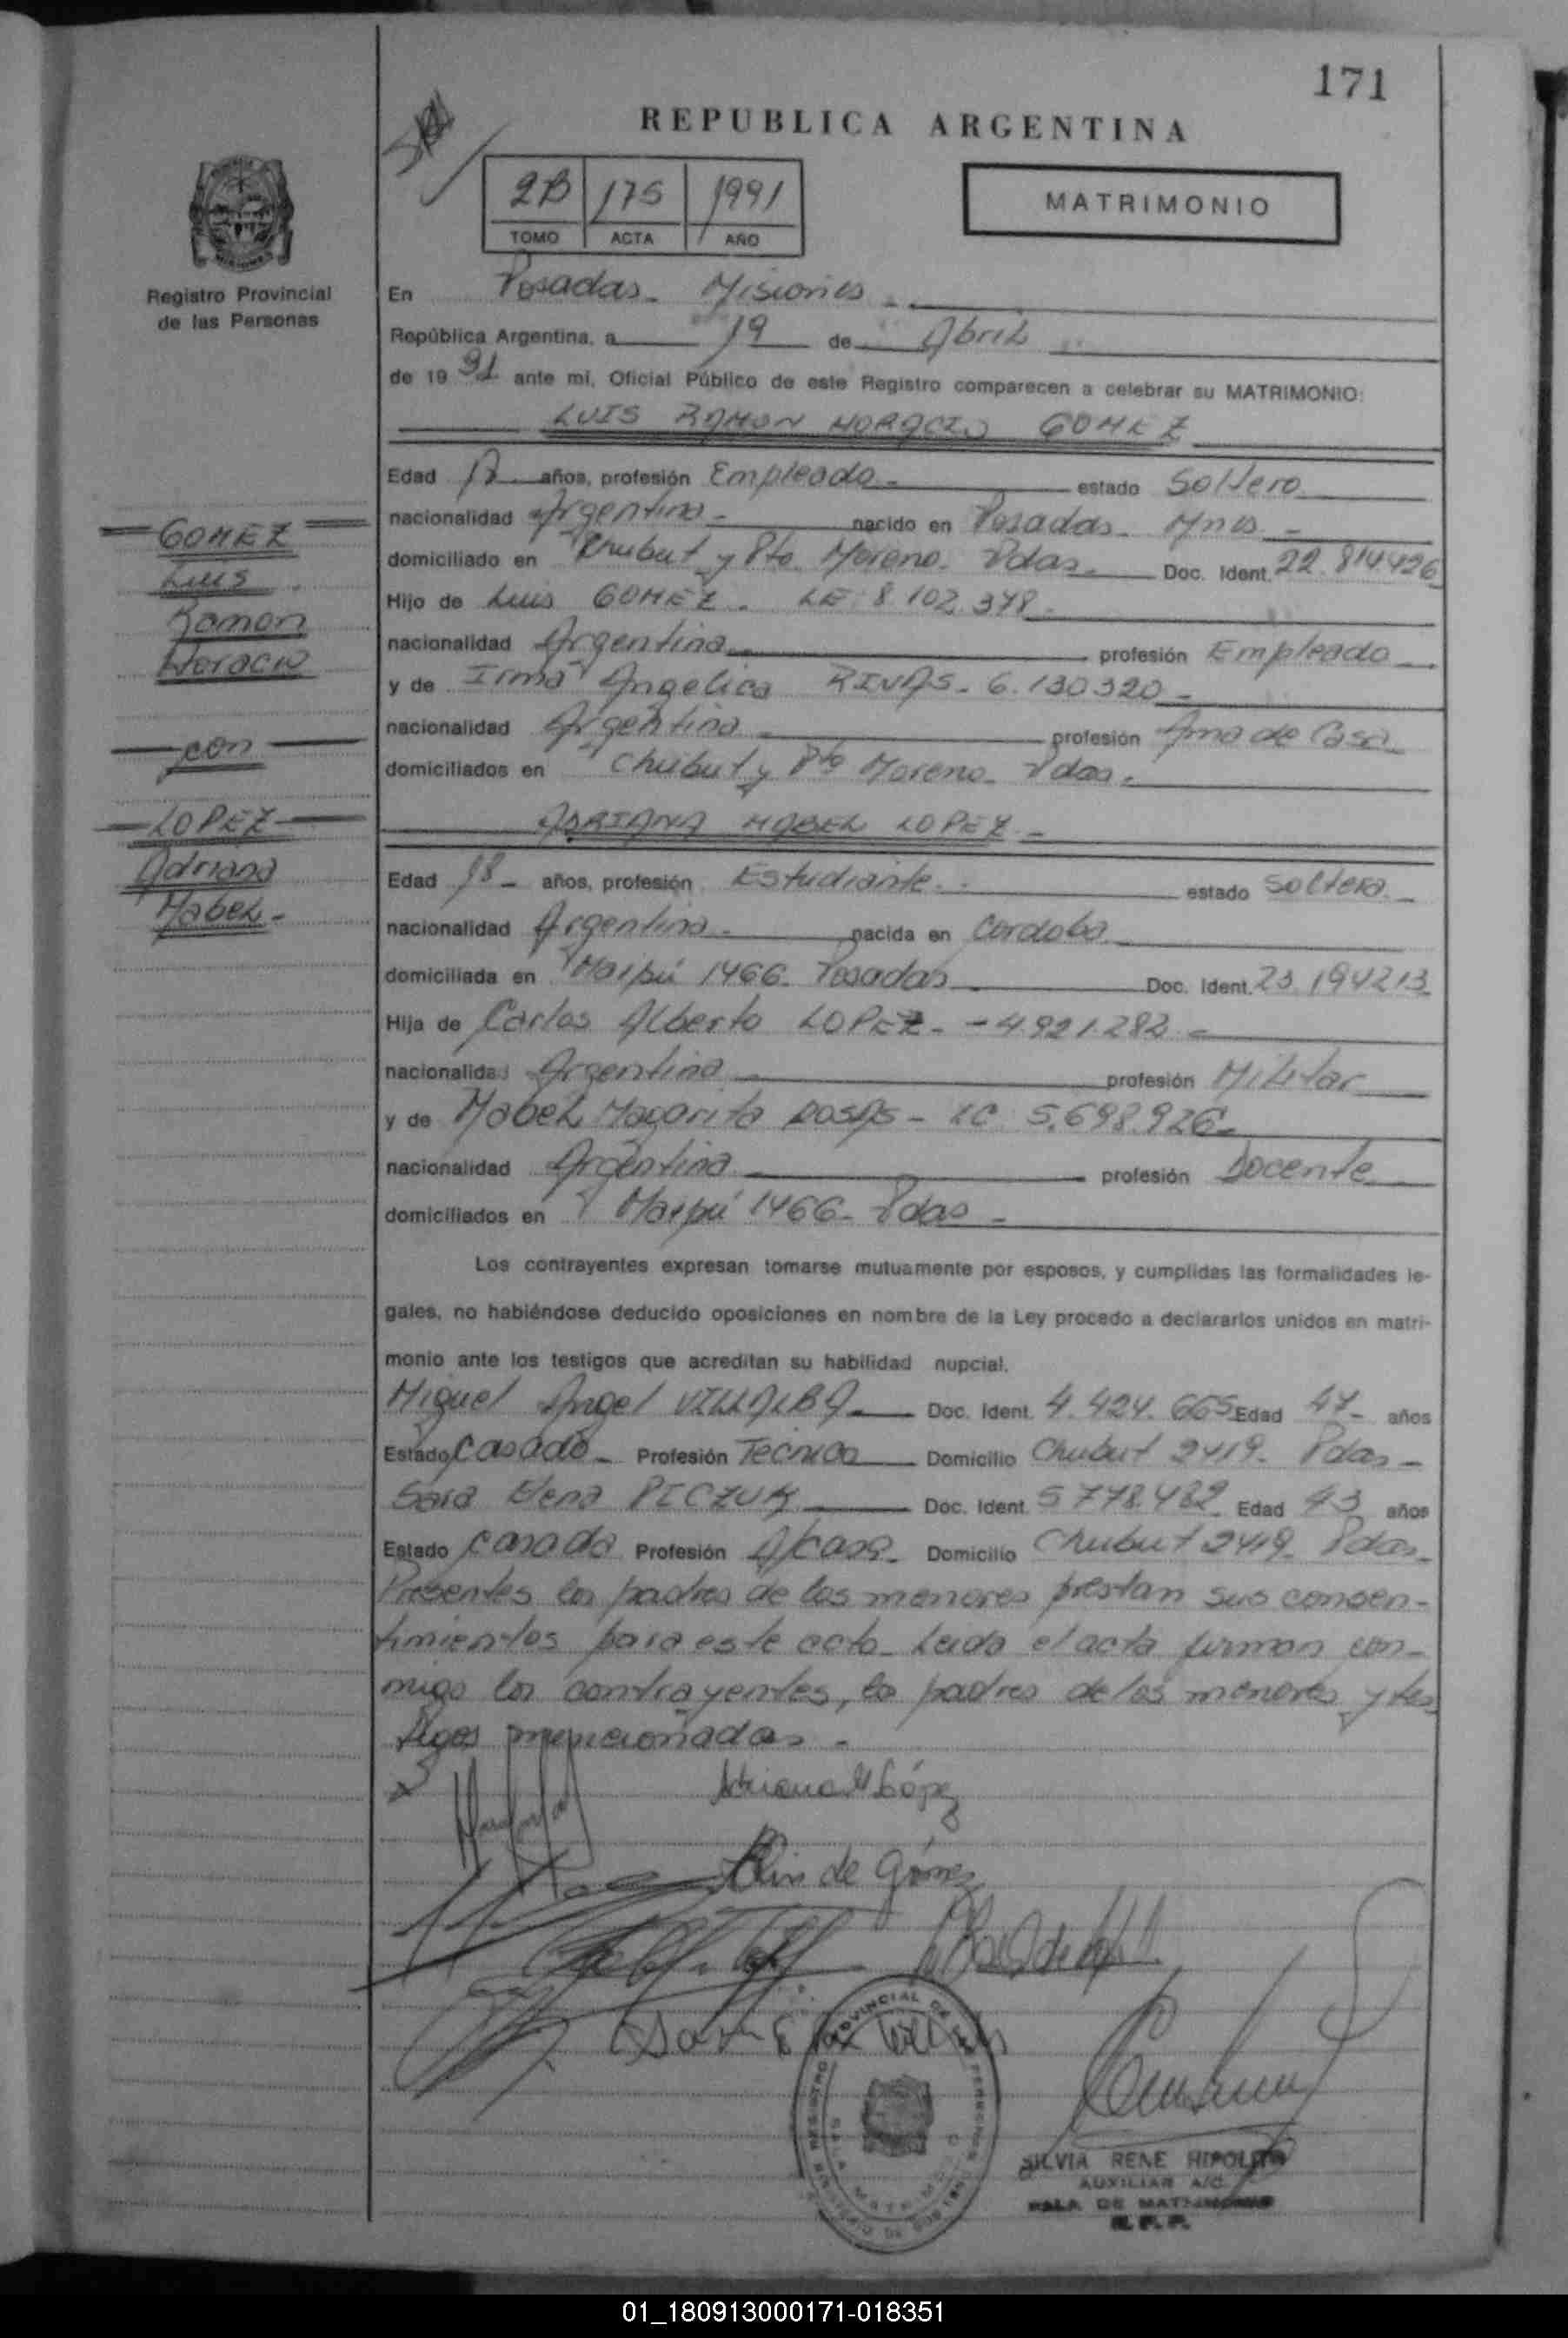 171
REPUBLICA ARGENTINA
2B 175 1991
TOMO ACTA AÑO
MATRIMONIO
Registro Provincial
de las Personas
En Posadas - Misiones -
República Argentina, a 19 de Abril
de 1991 ante mí, Oficial Público de este Registro comparecen a celebrar su MATRIMONIO:
LUIS RAMON HORACIO GOMEZ
Edad años, profesión Empleado - estado Soltero
nacionalidad Argentina - nacido en Posadas - Mnes -
domiciliado en Chubut y Pto Moreno - Pdas - Doc. Ident. 22.814426
Hijo de Luis GOMEZ - LE 8.102.378 -
nacionalidad Argentina profesión Empleado
y de Irma Angelica RIVAS - 6.130320 -
nacionalidad Argentina profesión Ama de Casa
domiciliados en Chubut y Pto Moreno - Pdas -
ADRIANA MABEL LOPEZ -
Edad 18 - años, profesión Estudiante - estado Soltera -
nacionalidad Argentina - nacida en Cordoba
domiciliada en Maipú 1466 - Posadas Doc. Ident. 23.194213
Hija de Carlos Alberto LOPEZ - - 4.921.282 -
nacionalidad Argentina profesión Militar
y de Mabel Magarita ROSAS - LC 5.698.926 -
nacionalidad Argentina profesión Docente
domiciliados en Maipú 1466 - Pdas -
Los contrayentes expresan tomarse mutuamente por esposos, y cumplidas las formalidades le-
gales, no habiéndose deducido oposiciones en nombre de la Ley procedo a declararlos unidos en matri-
monio ante los testigos que acreditan su habilidad nupcial.
Miguel Angel VILLALBA Doc. Ident. 4.424.665 Edad 47 - años
Estado Casado - Profesión Tecnico Domicilio Chubut 2419 - Pdas -
Sara Elena PICZUK Doc. Ident. 5778.482 Edad 43 años
Estado Casada Profesión A/casa - Domicilio Chubut 2419 - Pdas -
Presentes los padres de los menores prestan sus consen-
timientos para este acto - Leida el acta firman con-
migo los contrayentes, los padres de los menores y tes
tigos mencionados -
Adriana M López
de Gómez
GOMEZ
Luis
Ramon
Horacio
con
LOPEZ
Adriana
Mabel -
SILVIA RENE HIPOLITO
AUXILIAR A/C
SALA DE MATRIMONIO
R. P. P.
01_180913000171-018351